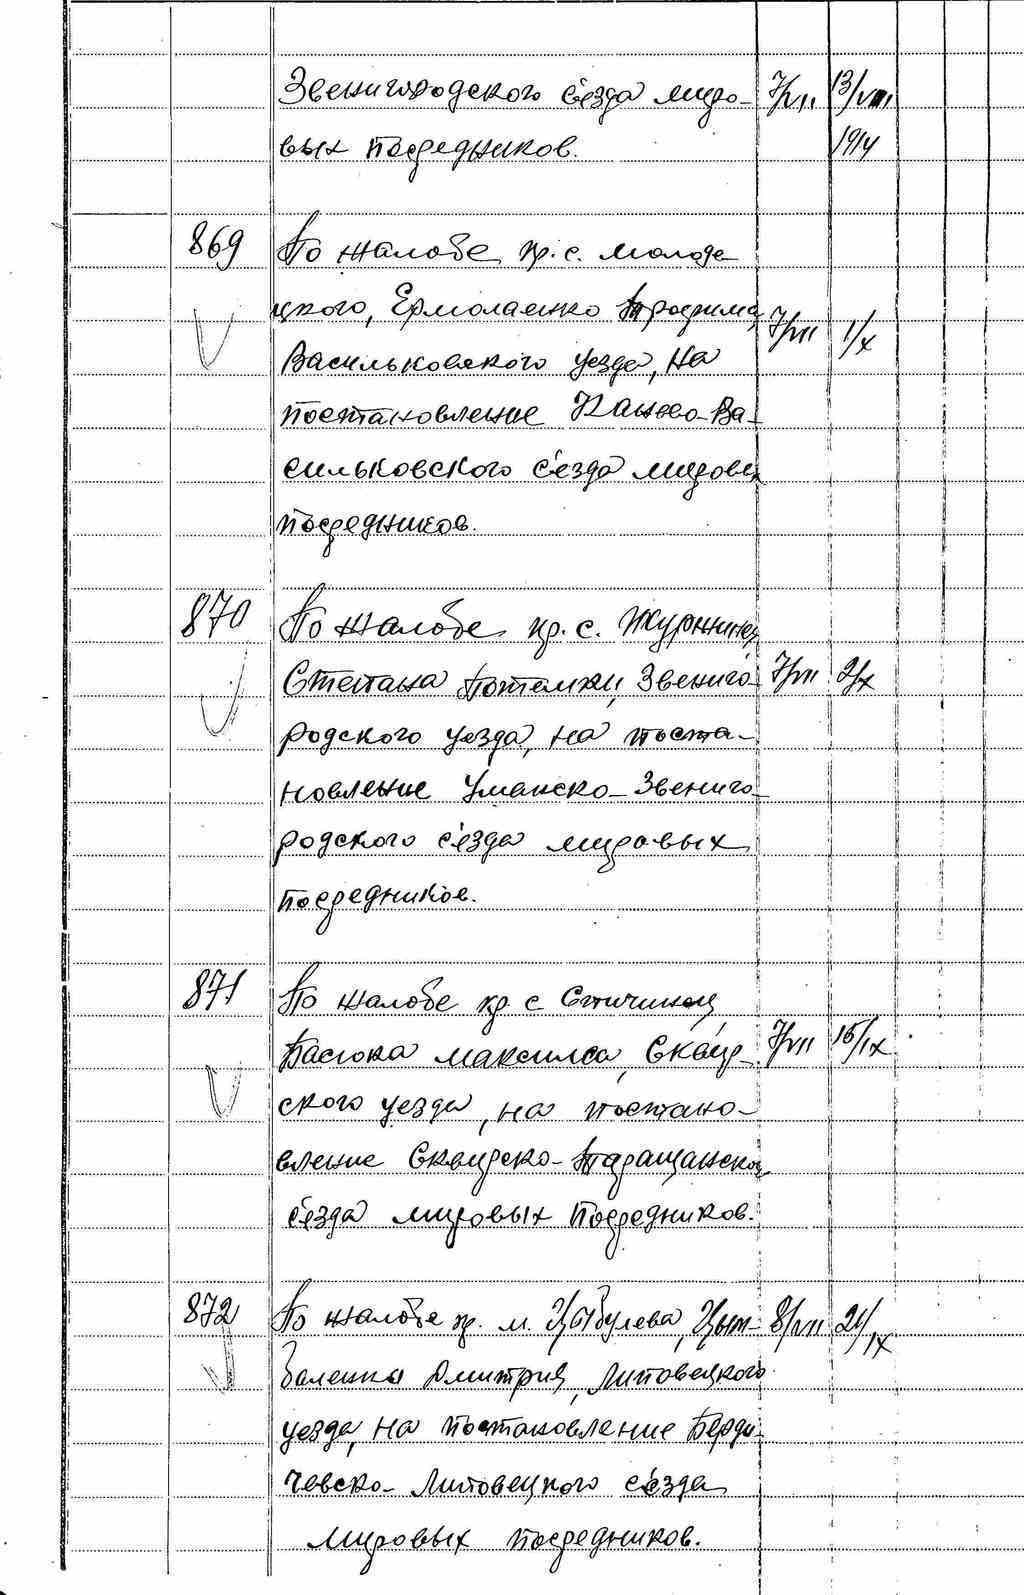 Звенигородского с'езда миро- 7/VII 13/VIII
вых посредников. 1914
869 По жалобе кр. с. Молоде
цкого, Ермолаенко Трофима,
Васильковского уезда, на 7/VII 1/X
постановление Канево-Ва-
сильковского с'езда мировых
посредников.
870 По жалобе кр. с. Журжинец
Степана Потемки, Звениго- 7/VII 2/X
родского уезда, на поста-
новление Уманско-Звениго-
родского с'езда мировых
посредников.
871 По жалобе кр с Антонины
Басюка Максима, Сквир- 7/VII 15/IX
ского уезда, на постано-
вление Сквирско-Таращанского
с'езда мировых посредников.
872 По жалобе кр. м. Цыбулева, 8/VII 21/IX
Дмитрия, Липовецкого
уезда, на постановление Берди-
чевско-Липовецкого с'езда
мировых посредников.